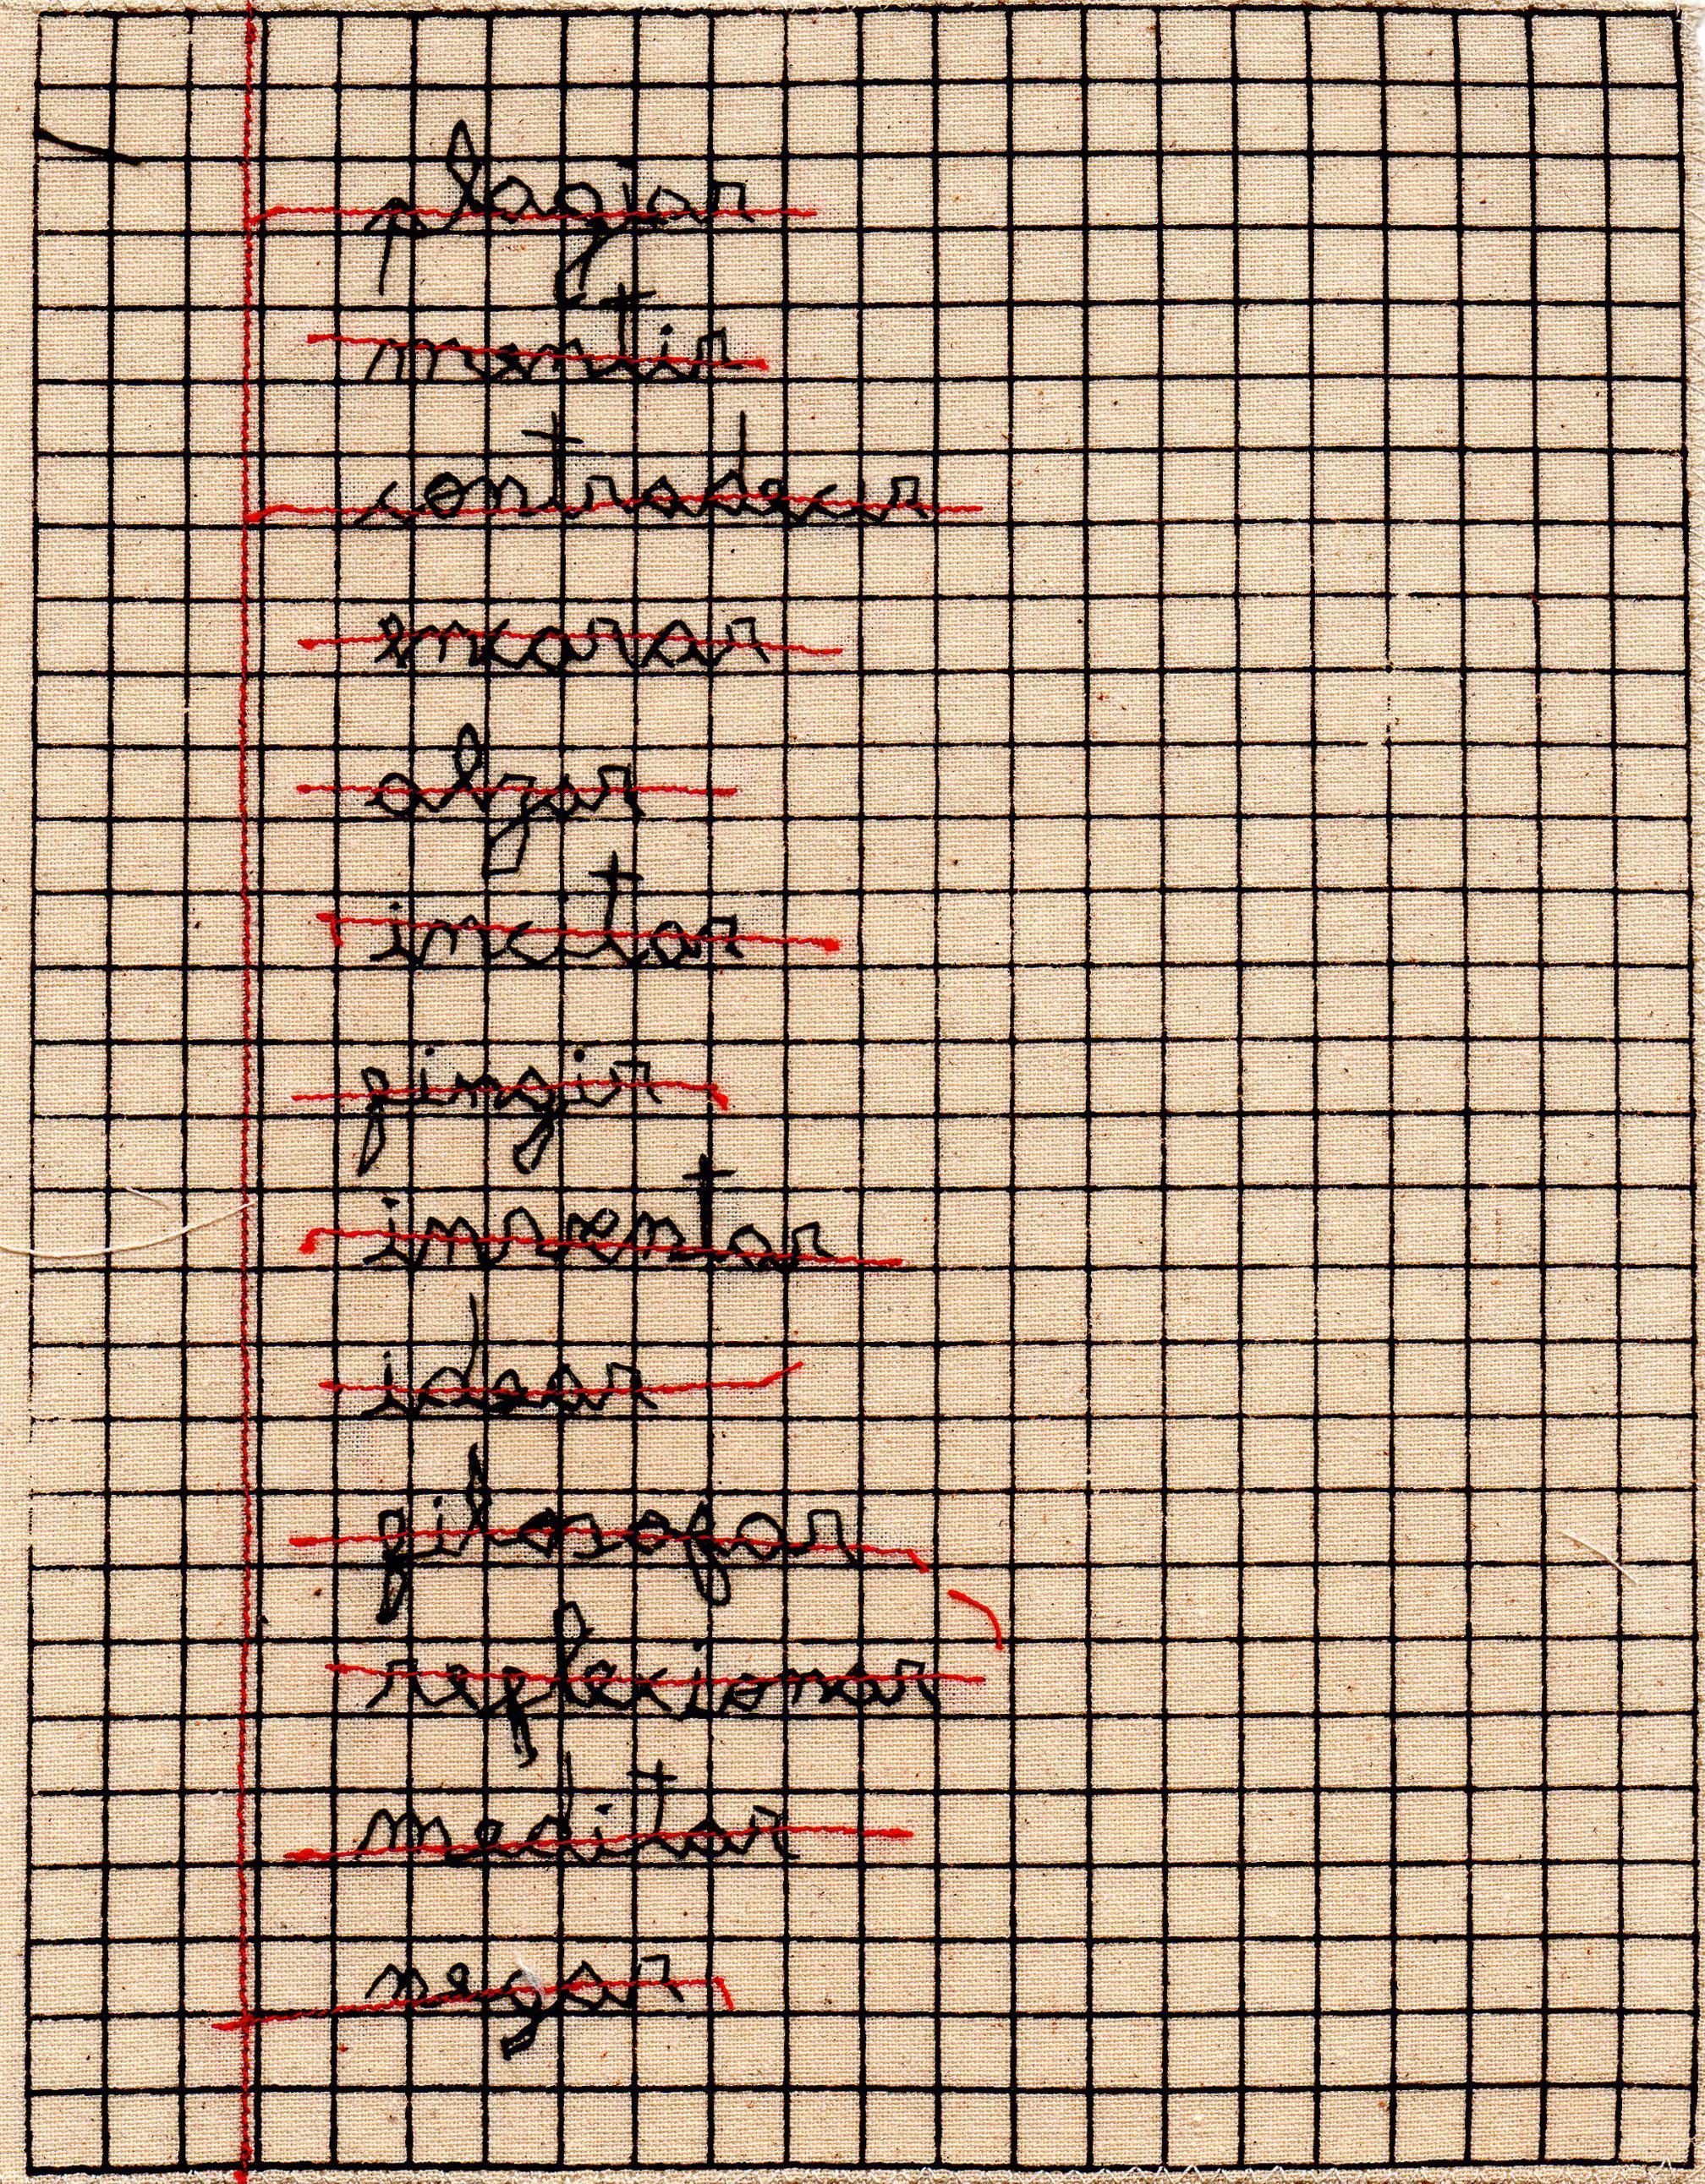 plagiar
mentir
contradecir
encarar
alzar
incitar
fingir
inventar
idear
filosofar
reflexionar
meditar
negar